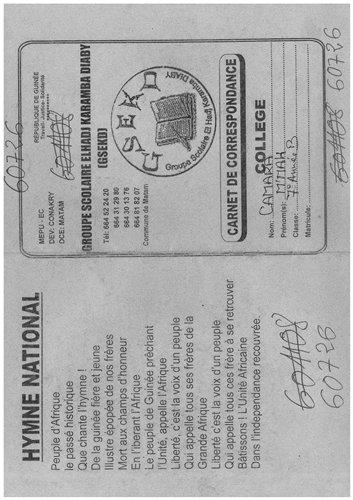 60726
RÉPUBLIQUE DE GUINÉE
Travail - Justice - Solidarité
MEPU - EC
DEV: CONAKRY
DCE: MATAM
GROUPE SCOLAIRE ELHADJ KARAMBA DIABY
(GSEKD)
Tél: 664 52 24 20
664 31 29 80
664 30 13 76
664 81 82 07
Commune de Matam
GSEKD
Groupe Scolaire El Hadj Karamba DIABY
CARNET DE CORRESPONDANCE
COLLEGE
Nom: CAMARA
Prénom(s): M'MAH
Classe: 7e Année B
Matricule:
60726
HYMNE NATIONAL
Peuple d'Afrique
le passé historique
Que chante l'hymne !
De la guinée fière et jeune
Illustre épopée de nos frères
Mort aux champs d'honneur
En l'iberant l'Afrique
Le peuple de Guinée prêchant
l'Unité, appelle l'Afrique
Liberté, c'est la voix d'un peuple
Qui appelle tous ses frères de la
Grande Afrique
Liberté c'est la voix d'un peuple
Qui appelle tous ces frère à se retrouver
Bâtissons : L'Unité Africaine
Dans l'independance recouvrée.
60726